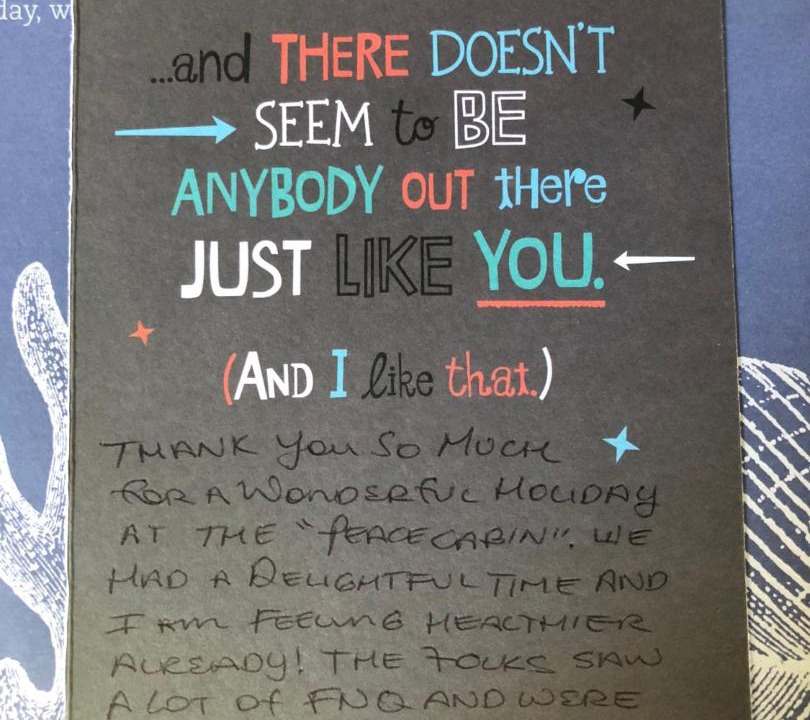 day, w
...and THERE DOESN'T
SEEM to BE
ANYBODY OUT tHere
JUST LIKE YOU.
(AND I like that.)
THANK YOU SO MUCH
FOR A WONDERFUL HOLIDAY
AT THE "PEACE CABIN". WE
HAD A DELIGHTFUL TIME AND
I AM FEELING HEALTHIER
ALREADY! THE FOLKS SAW
A LOT OF FNQ AND WERE